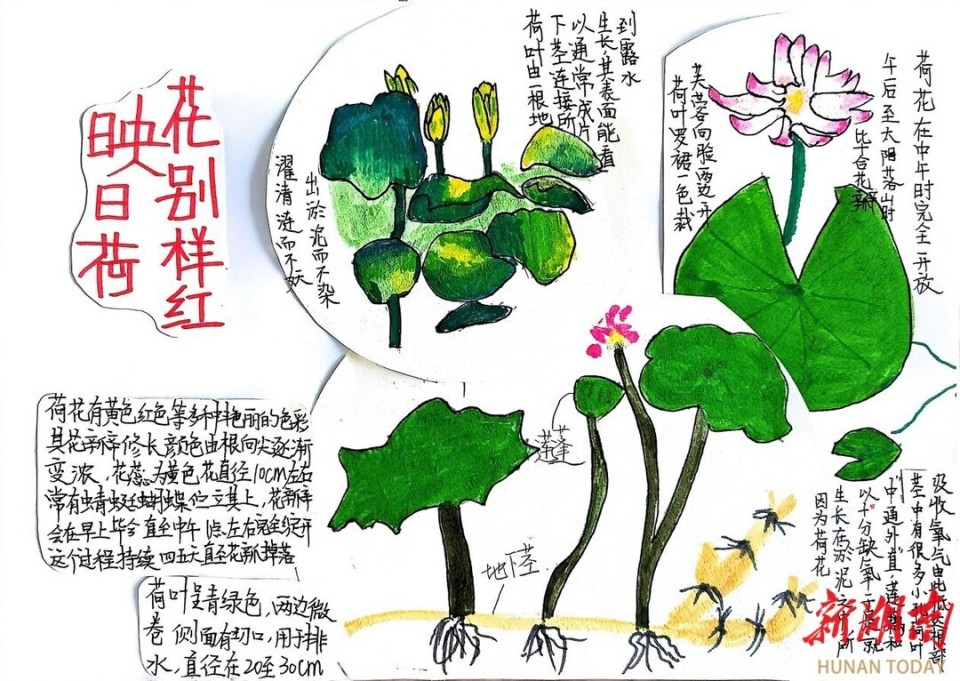 映日荷
花别样红
荷叶由一根地
下茎连接所
以通常成片
生长,其表面能看
到露水
出於泥而不染
濯清涟而不妖
荷叶罗裙一色裁
芙蓉向脸两边开
荷花在中午时完全开放
午后至太阳落山时
毕合花瓣
荷花有黄色红色等多种艳丽的色彩
其花瓣修长颜色由根向尖逐渐
变浓,花蕊为黄色花直径10cm左右
常有蜻蜓蝴蝶伫立其上,花瓣
会在早上毕合直至中午1点左右完全绽开
这个过程持续四五天直至花瓣掉落
荷叶呈青绿色,两边微
卷 侧面有切口,用于排
水,直径在20至30cm
莲蓬
地下茎
因为荷花
生长在淤泥之 所
以十分缺氧 于是就
中通外直,莲藕和
茎中有很多小孔荷叶
吸收氧气由此 根部
新湖南
HUNAN TODAY